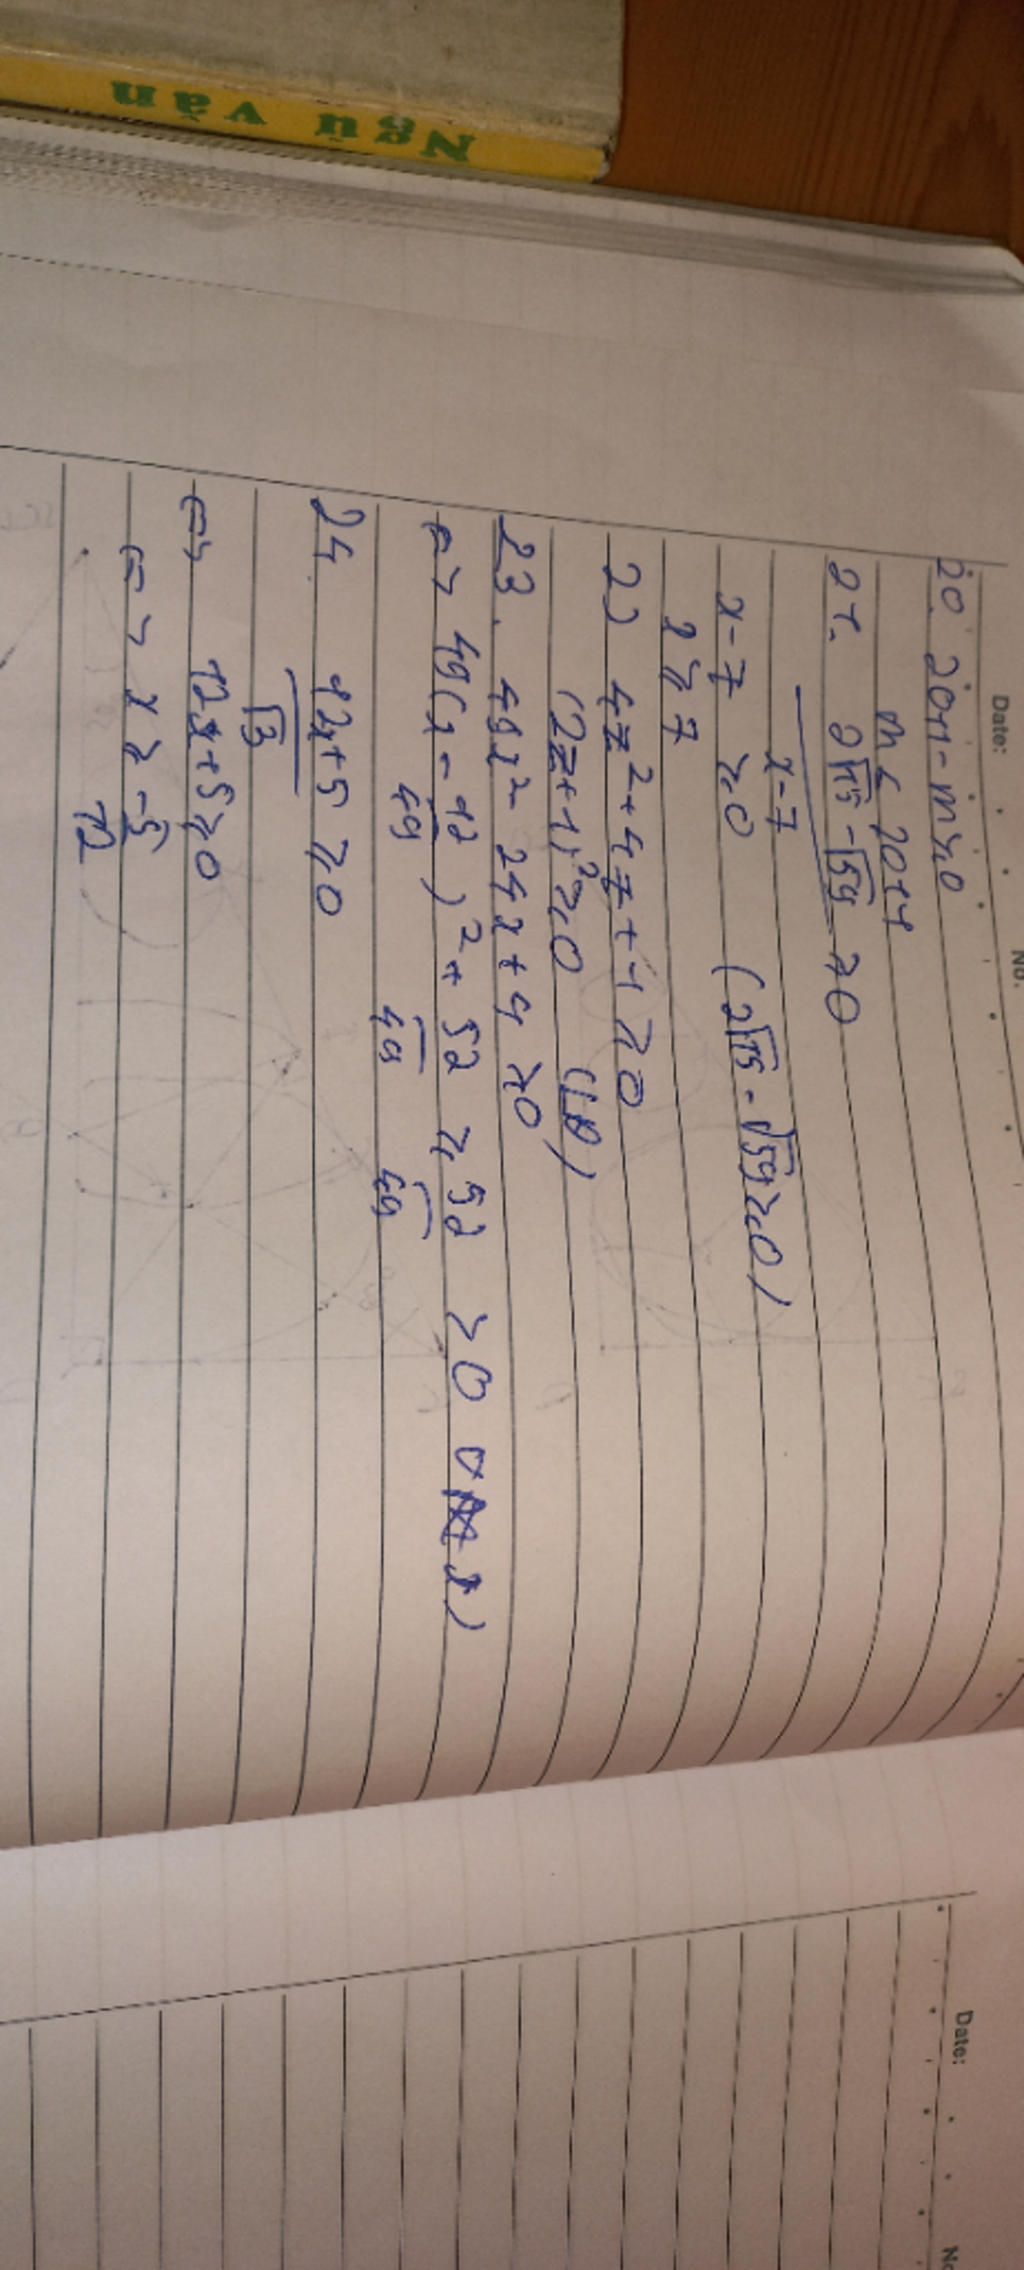 Ngữ văn
Date:
No.
20. 2011 - m ≥ 0
m ≤ 2011
21. 2√15 - √59 ≥ 0
x - 7
x - 7 ≥ 0 (2√15 - √59 ≥ 0)
x ≥ 7
2) 4z² + 4z + 1 ≥ 0
(2z + 1)² ≥ 0 (LĐ)
23. 49x² - 24x + 4 ≥ 0
<=> 49(x - 12/49)² + 52/49 ≥ 52/49 > 0
24 12x + 5 ≥ 0
√3
<=> 12x + 5 ≥ 0
<=> x ≥ -5/12
Date:
No